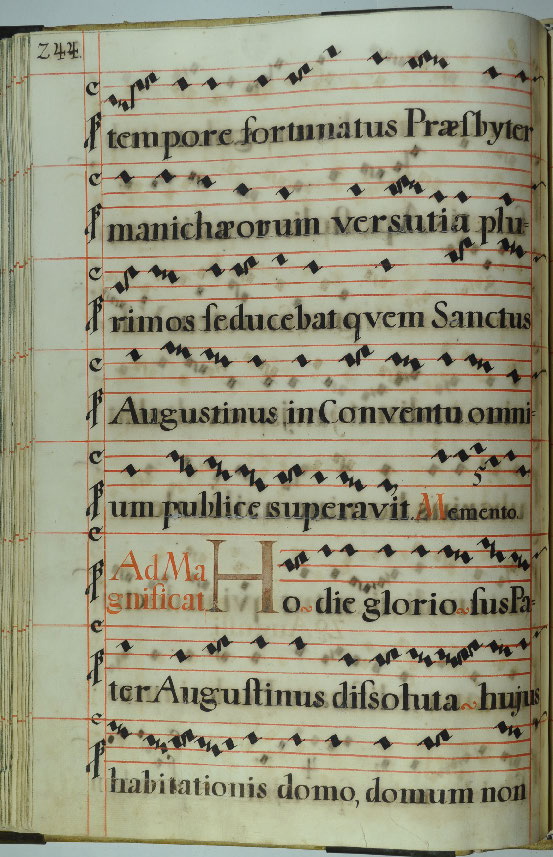 244.
tempore fortunatus Præsbyter
manichæorum versutia plu-
rimos seducebat qvem Sanctus
Augustinus in Conventu omni-
um publice superavit. Memento.
Ad Ma
gnificat
Ho~die glorio~sus Pa-
ter Augustinus dissoluta~hujus
habitationis domo, domum non